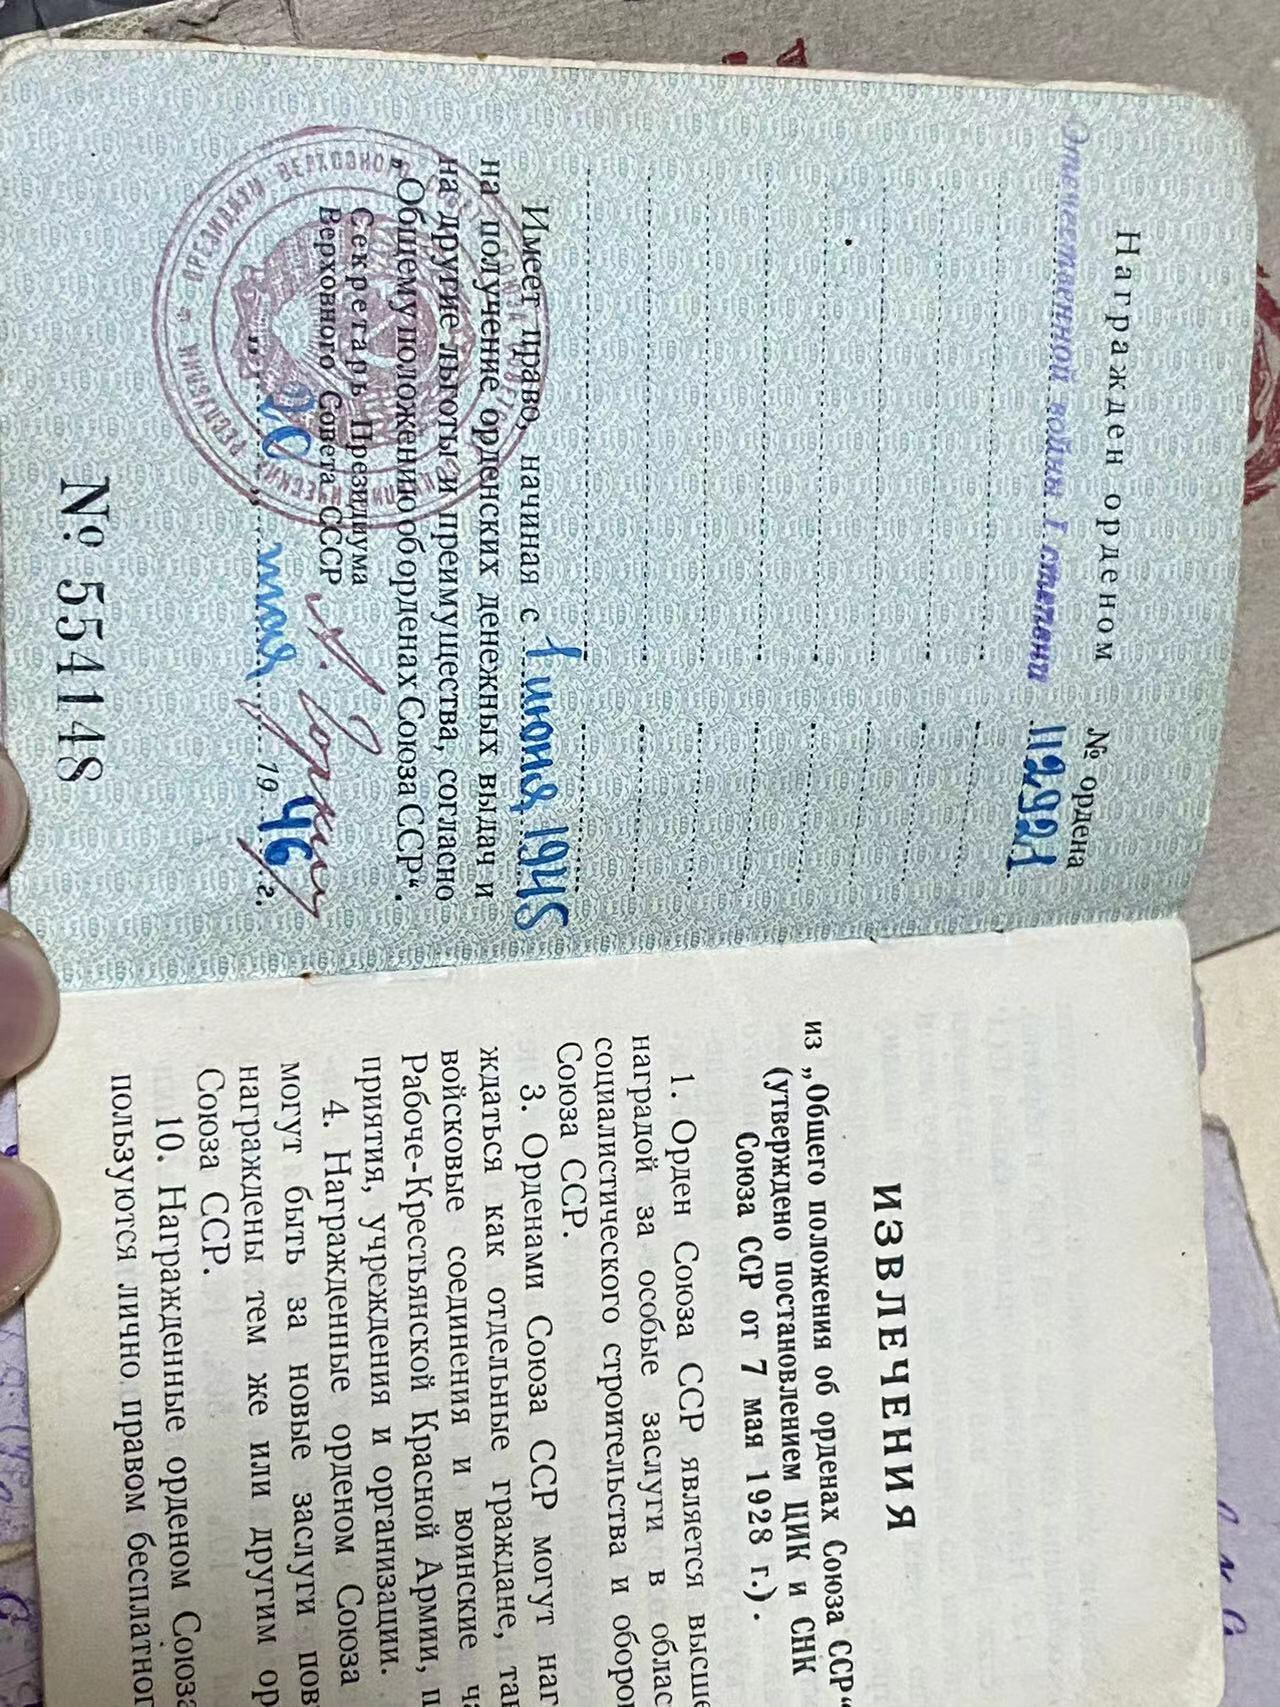 Награжден орденом № ордена
Отечественной войны I степени 112921
Имеет право, начиная с 1 июня 1945
на получение орденских денежных выдач и
на другие льготы и преимущества, согласно
„Общему положению об орденах Союза ССР“.
Секретарь Президиума
Верховного Совета СССР
„20“ мая 1946 г.
№ 554148
ПРЕЗИДИУМ ВЕРХОВНОГО
ИЗВЛЕЧЕНИЯ
из „Общего положения об орденах Союза ССР“
(утверждено постановлением ЦИК и СНК
Союза ССР от 7 мая 1928 г.).
1. Орден Союза ССР является высше
наградой за особые заслуги в облас
социалистического строительства и оборо
Союза ССР.
3. Орденами Союза ССР могут наг
ждаться как отдельные граждане, так
войсковые соединения и воинские ча
Рабоче-Крестьянской Красной Армии, п
приятия, учреждения и организации.
4. Награжденные орденом Союза
могут быть за новые заслуги пов
награждены тем же или другим ор
Союза ССР.
10. Награжденные орденом Союза
пользуются лично правом бесплатног